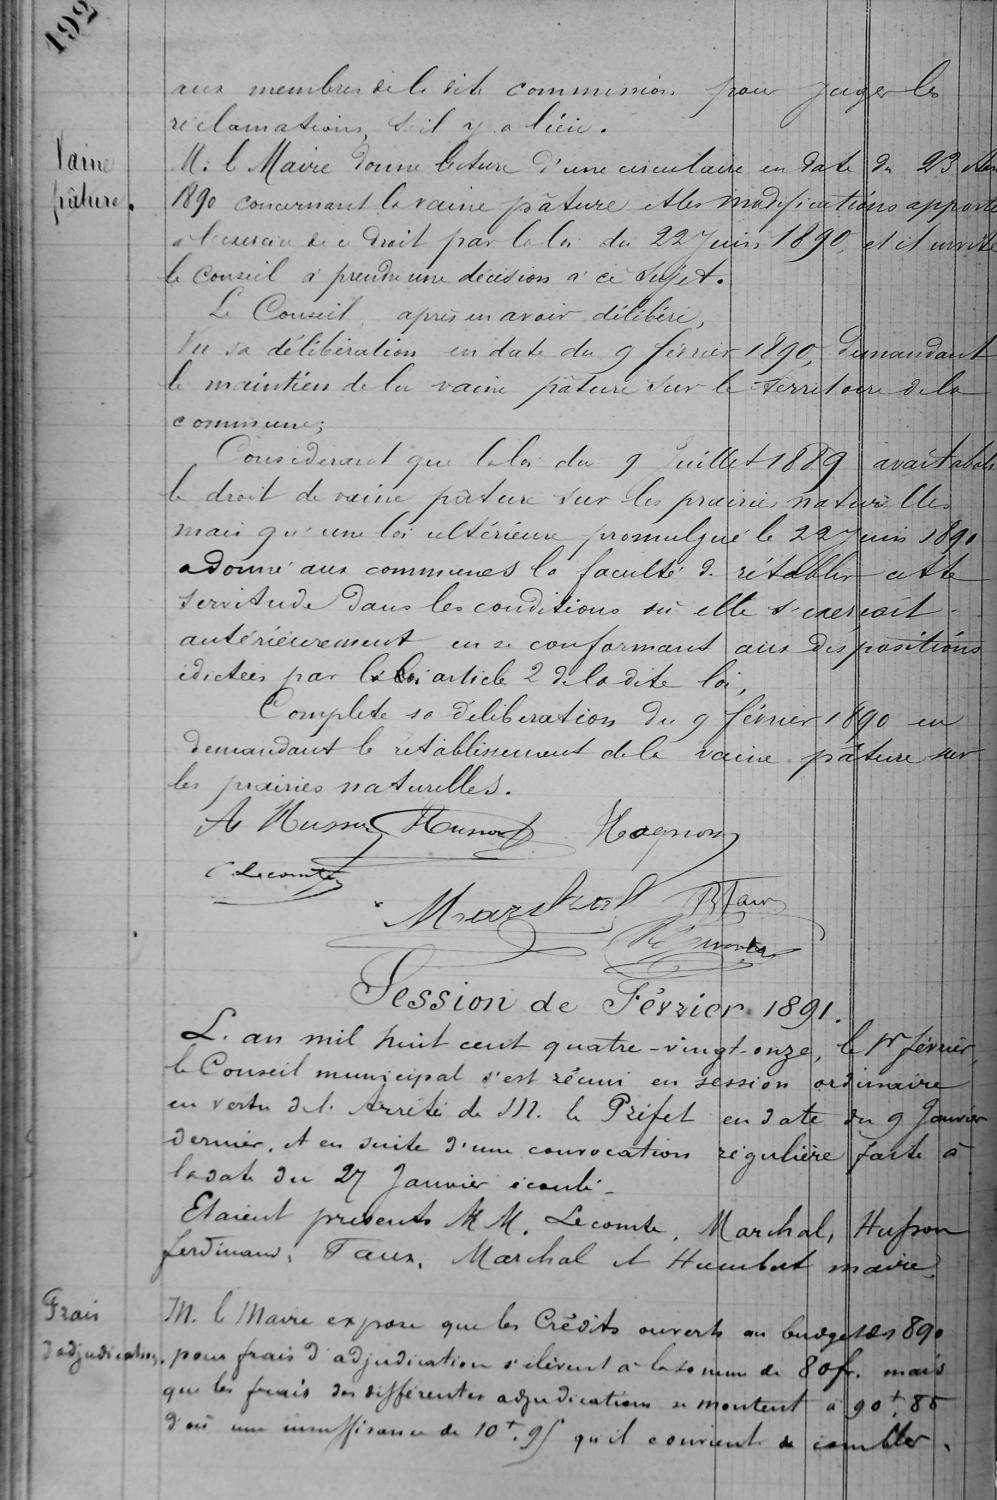 192
aux membres de la dite commission pour juger les
réclamations, s'il y a lieu.
Vaine
pâture.
M. le Maire donne lecture d'une circulaire en date du 23
1890 concernant la vaine pâture et les modifications apportée
a l'exercice de ce droit par la loi du 22 Juin 1890, et il invite
le Conseil à prendre une décision à ce sujet.
Le Conseil, après en avoir délibéré,
Vu sa délibération en date du 9 février 1890, demandant
le maintien de la vaine pâture sur le territoire de la
commune;
Considérant que la loi du 9 Juillet 1889 avait aboli
le droit de vaine pâture sur les prairies naturelles
mais qu'une loi ultérieure promulgué le 22 Juin 1890
a donné aux communes la faculté de rétablir cette
servitude dans les conditions où elle s'exerçait
antérieurement en se conformant aux dispositions
édictées par article 2 de la dite loi,
Complete sa délibération du 9 février 1890 en
demandant le rétablissement de la vaine pâture sur
les prairies naturelles.
A Husson Husson Hagnon
Lecomte
Marchal B Taux
Session de Février 1891.
L'an mil huit cent quatre-vingt-onze, le 1er février,
le Conseil municipal s'est réuni en session ordinaire
en vertu de l'Arrêté de M. le Préfet en date du 9 Janvier
dernier, et en suite d'une convocation régulière faite à
la date du 27 Janvier écoulé -
Etaient présents MM. Lecomte, Marchal, Husson
ferdinand, Taux, Marchal et Humbert maire.
Frais
d'adjudication.
M. le Maire expose que les Crédits ouverts au budget de 1890
pour frais d'adjudication s'élèvent à la somme de 80 fr. mais
que les frais des différentes adjudications se montent à 90f.85
d'où une insuffisance de 10f.95 qu'il convient de combler.